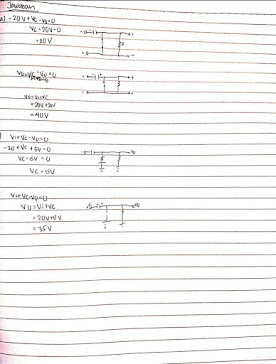 Jawaban
a) -20V + Vc - Vo = 0
Vc = 20V - 0
= 20V
Vo = Vi + Vc
= 20V + 20V
= 40V
Vi + Vc - Vo = 0
-20 + Vc + 5V = 0
Vc - 15V = 0
Vc = 15V
Vi + Vc - Vo = 0
Vo = Vi + Vc
= 20V + 15V
= 35V